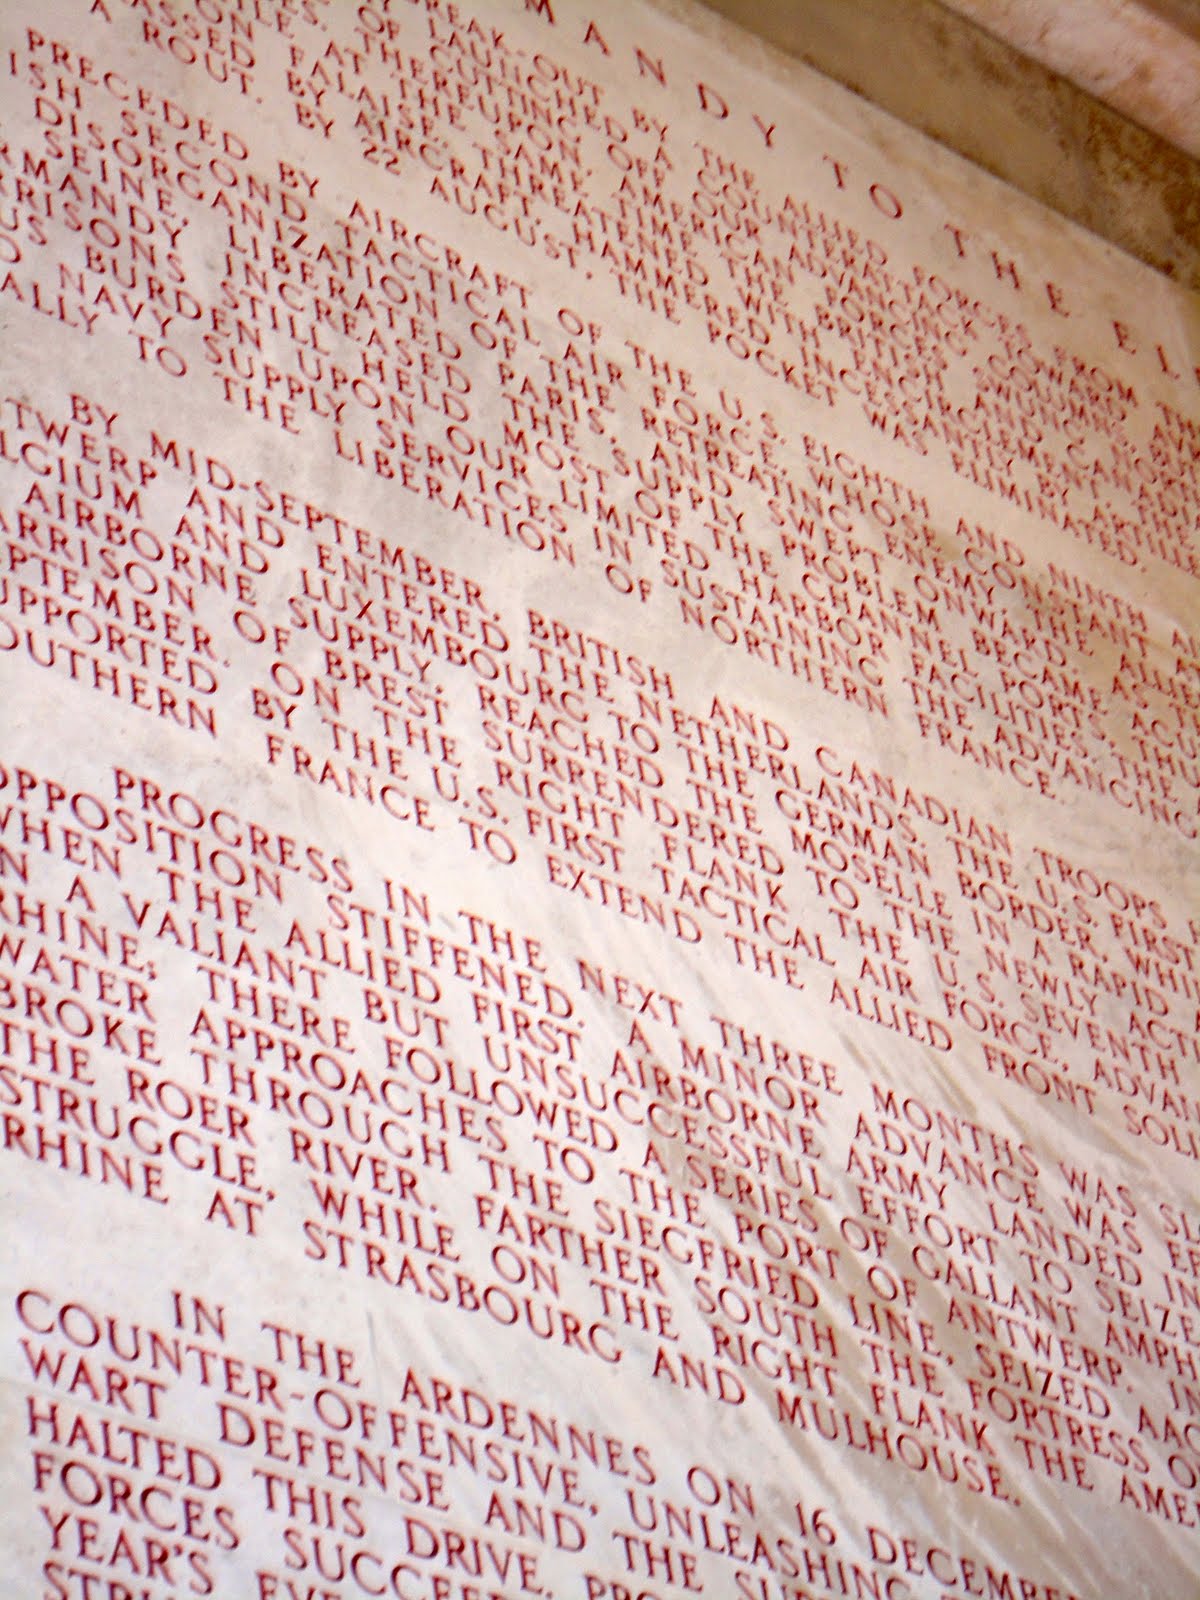 MANDY TO THE E
REAK-OUT BY THE ALLIED FORCES FROM TH
LAUNCHED A COUNTERATTACK TOWARD AV
OF CUTTING OFF OUR ADVANCING COLUMNS
THEREUPON, AMERICAN FORCES SWUNG NOR
AT THE SAME TIME THE BRITISH AND CANADI
FALAISE. THREATENED WITH ENCIRCLEMENT
BY AIRCRAFT, HAMMERED INCESSANTLY BY ARTILLE
A ROUT. BY 22 AUGUST, THE POCKET WAS ELIMINATED.
PRECEDED BY AIRCRAFT OF THE U.S. EIGHTH AND NINTH A
ISH SECOND TACTICAL AIR FORCE, WHOSE CONSTANT A
DISORGANIZATION OF THE RETREATING ENEMY, THE ALLIE
SEINE, LIBERATED PARIS, AND SWEPT ONWARD. AS T
RMANDY INCREASED THE SUPPLY PROBLEM BECAME ACU
RRISONS STILL HELD MOST OF THE CHANNEL PORTS, THU
US BURDEN UPON OUR LIMITED HARBOR FACILITIES. THE
NAVY SUPPLY SERVICES IN SUSTAINING THE ADVANCING
ALLY TO THE LIBERATION OF NORTHERN FRANCE.
BY MID-SEPTEMBER, BRITISH AND CANADIAN TROOPS
TWERP AND ENTERED THE NETHERLANDS. THE U.S. FIRST
LGIUM AND LUXEMBOURG TO THE GERMAN BORDER, WHI
AIRBORNE SUPPLY, REACHED THE MOSELLE IN A RAPID
ARRISON OF BREST SURRENDERED TO THE NEWLY ACTI
EPTEMBER. ON THE RIGHT FLANK THE U.S. SEVENTH
UPPORTED BY THE U.S. FIRST TACTICAL AIR FORCE, ADVAN
OUTHERN FRANCE TO EXTEND THE ALLIED FRONT SOLI
PROGRESS IN THE NEXT THREE MONTHS WAS SL
OPPOSITION STIFFENED. A MINOR ADVANCE WAS EF
WHEN THE ALLIED FIRST AIRBORNE ARMY LANDED IN
N A VALIANT BUT UNSUCCESSFUL EFFORT TO SEIZE
RHINE, THERE FOLLOWED A SERIES OF GALLANT AMPH
WATER APPROACHES TO THE PORT OF ANTWERP. IN
BROKE THROUGH THE SIEGFRIED LINE, SEIZED AAC
THE ROER RIVER. FARTHER SOUTH THE FORTRESS O
STRUGGLE, WHILE ON THE RIGHT FLANK THE AME
RHINE AT STRASBOURG AND MULHOUSE.
IN THE ARDENNES ON 16 DECEMBE
COUNTER-OFFENSIVE, UNLEASHING
WART DEFENSE AND THE SUP
HALTED THIS DRIVE. PRO
FORCES SUCCEE
YEAR'S EVE